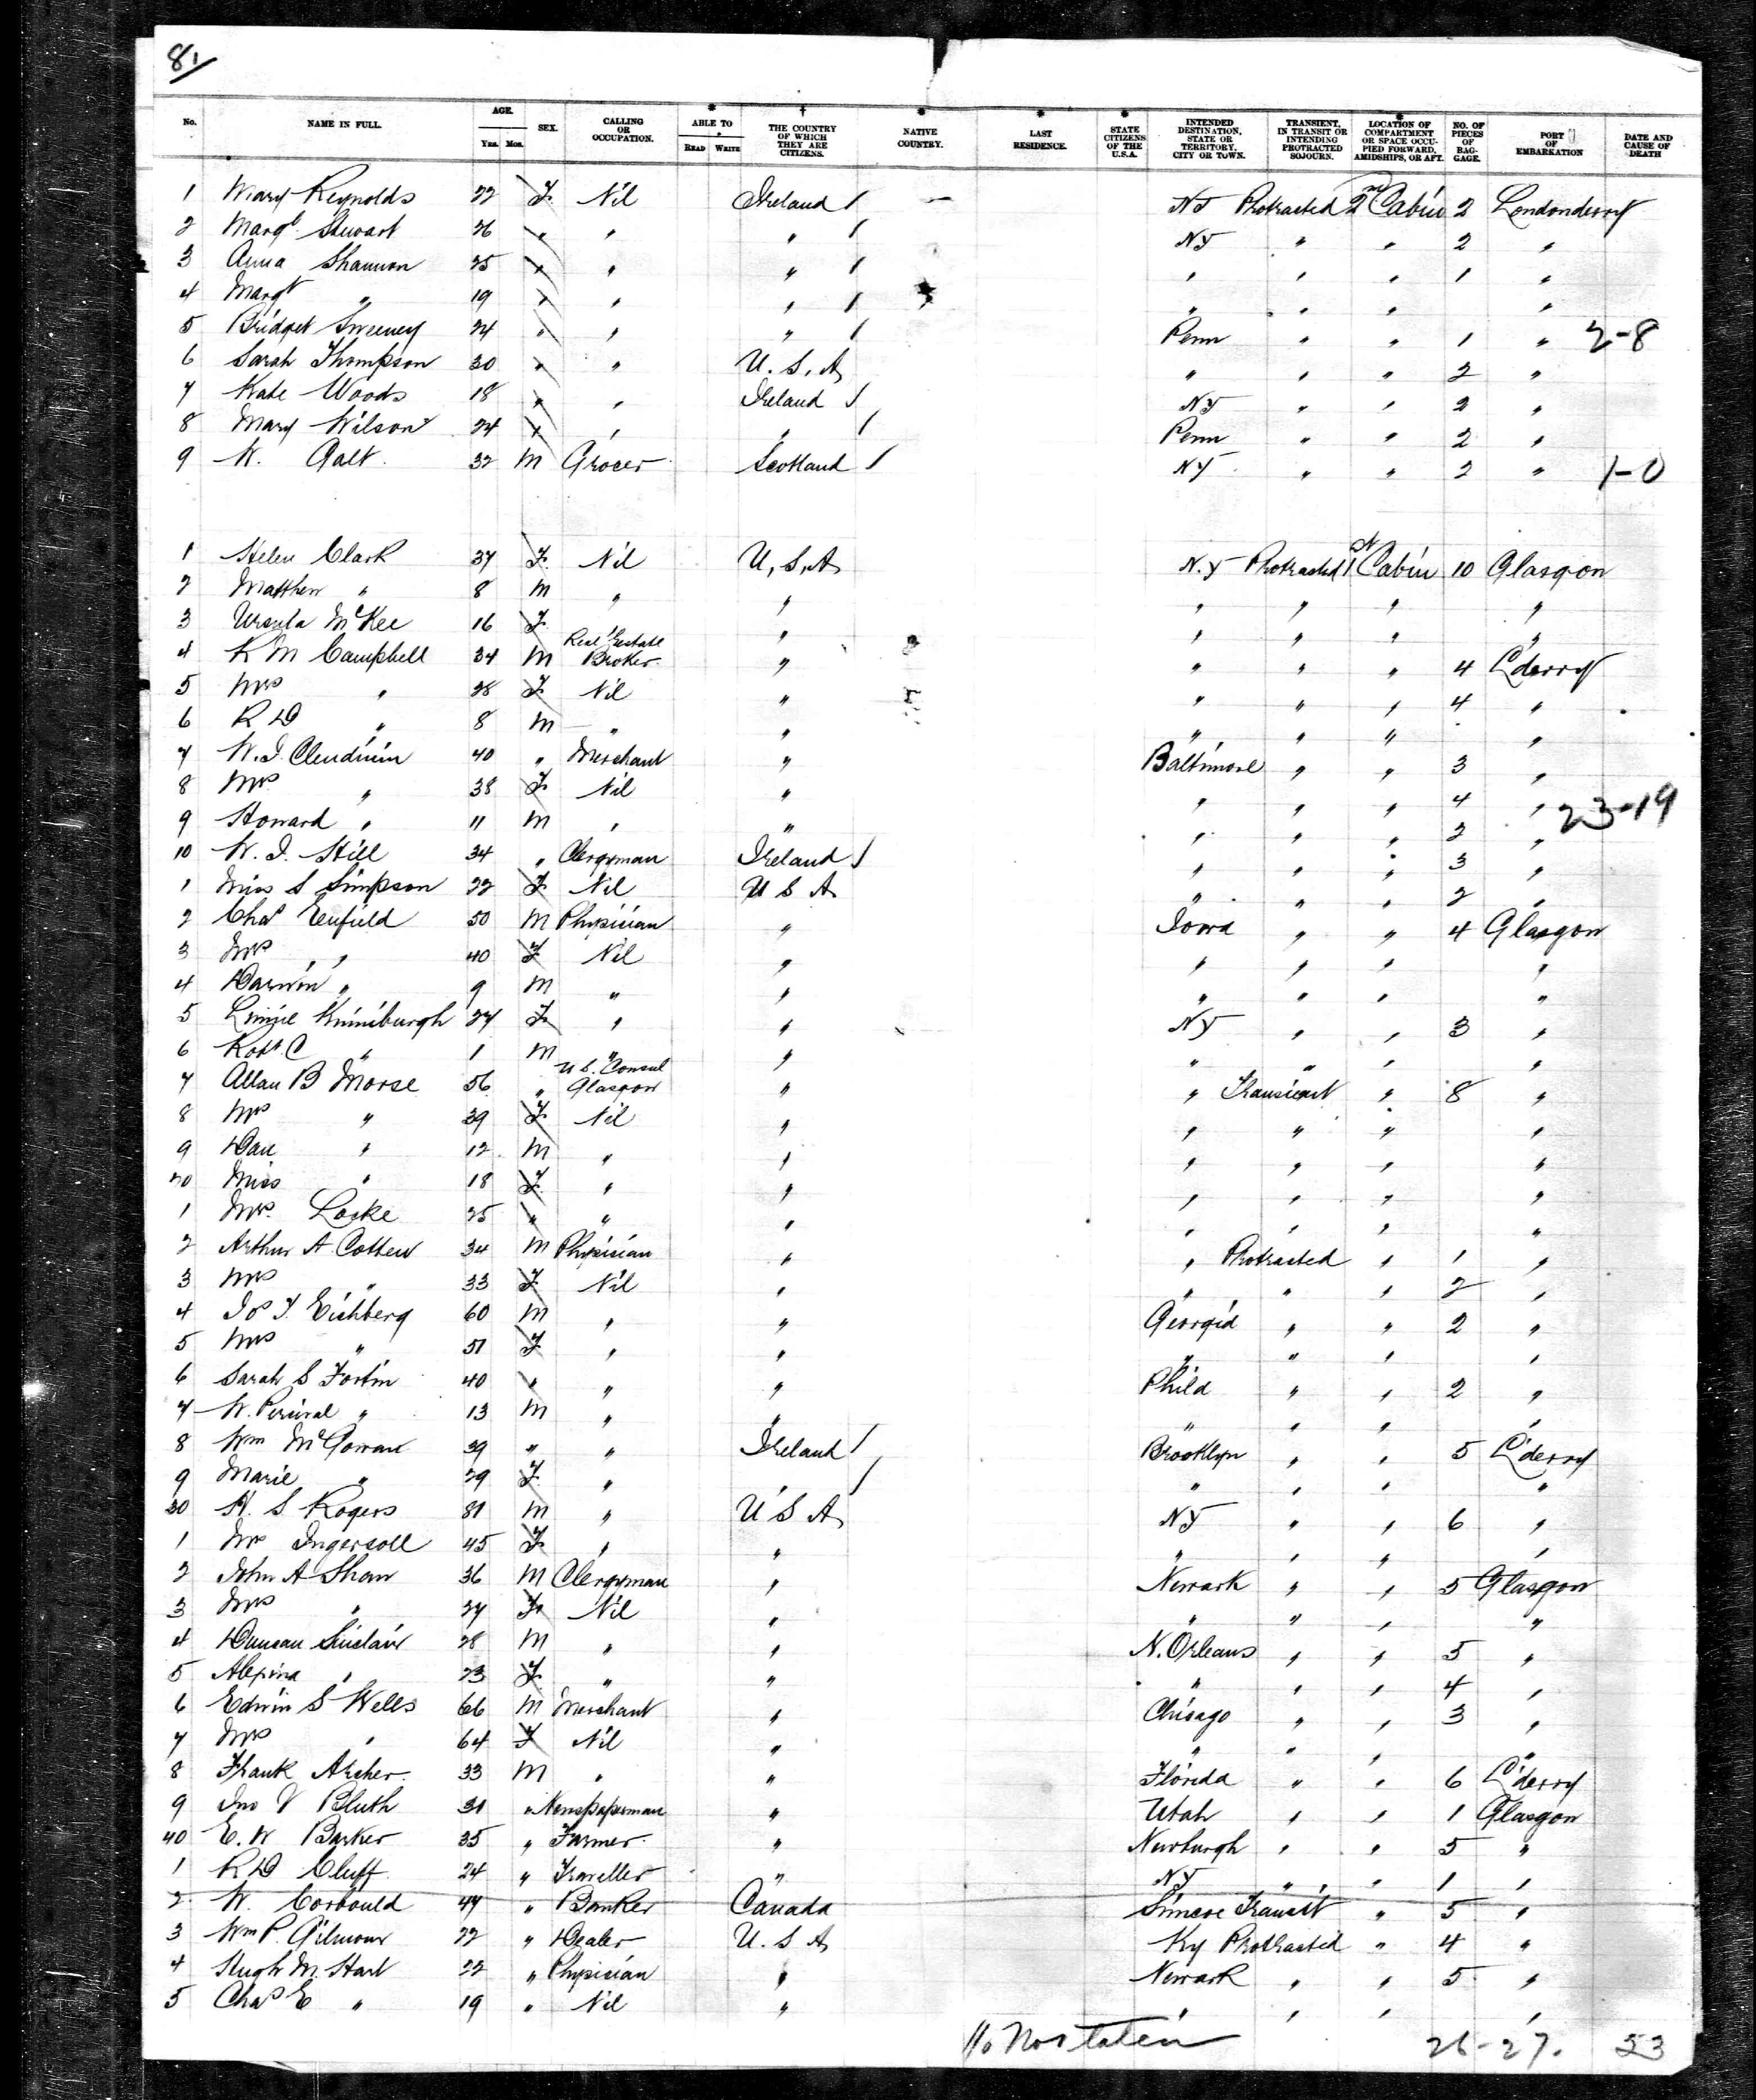 81
No. NAME IN FULL. AGE. Yrs. Mos. SEX. CALLING OR OCCUPATION. * ABLE TO READ WRITE † THE COUNTRY OF WHICH THEY ARE CITIZENS. * NATIVE COUNTRY. * LAST RESIDENCE. * STATE CITIZENS OF THE U.S.A. INTENDED DESTINATION, STATE OR TERRITORY, CITY OR TOWN. TRANSIENT, IN TRANSIT OR INTENDING PROTRACTED SOJOURN. * LOCATION OF COMPARTMENT OR SPACE OCCUPIED FORWARD, AMIDSHIPS, OR AFT. NO. OF PIECES OF BAGGAGE. PORT OF EMBARKATION DATE AND CAUSE OF DEATH
1 Mary Reynolds 22 F Nil Ireland / NY Protracted 2nd Cabin 2 Londonderry
2 Margt. Stewart 26 " " " / NY " " 2 "
3 Anna Shannon 25 " " " / " " " 1 "
4 Margt " 19 " " " / " " " "
5 Bridget Sweeney 24 " " " / Penn " " 1 " 2-8
6 Sarah Thompson 30 " " U.S.A " " " 2 "
7 Kate Woods 18 " " Ireland / NY " " 2 "
8 Mary Wilson 24 " " " / Penn " " 2 "
9 W. Galt 32 M Grocer Scotland / NY " " 2 " 1-0
1 Helen Clark 37 F. Nil U.S.A N.Y Protracted 1st Cabin 10 Glasgow
2 Matthew " 8 M " " " " " "
3 Ursula McKee 16 F " " " " "
4 R M Campbell 34 M Real Eestate Broker " " " " 4 L'derry
5 Mrs " 28 F Nil " " " " 4 "
6 R D " 8 M " " " " " "
7 W.J. Clendinin 40 " Merchant " Baltimore " " 3 "
8 Mrs " 38 F Nil " " " " 4 " 23-19
9 Howard " 11 M " " " " " 2 "
10 W. J. Hill 34 " Clergyman Ireland / " " " 3 "
1 Miss S Simpson 22 F Nil U S A " " " 2 "
2 Chas Enfield 50 M Physician " Iowa " " 4 Glasgow
3 Mrs " 40 F Nil " " " " "
4 Darwin " 9 M " " " " " "
5 Lizzie Kinniburgh 27 F " " NY " " 3 "
6 Robt. C " 1 M " " " " " "
7 Allan B Morse 56 " U S. Consul Glasgow " " Transient " 8 "
8 Mrs " 39 F Nil " " " " "
9 Dan " 12 M " " " " " "
20 Miss " 18 F " " " " " "
1 Mrs. Locke 25 " " " " " " "
2 Arthur A. Cotten 34 M Physician " " Protracted " 1 "
3 Mrs " 33 F Nil " " " " 2 "
4 Jos J. Eichberg 60 M " " Georgia " " 2 "
5 Mrs " 51 F " " " " " "
6 Sarah S Fortin 40 " " " Phila " " 2 "
7 W. Percival " 13 M " " " " " "
8 Wm McGowan 39 " " Ireland / Brooklyn " " 5 L'derry
9 Marie " 29 F " " / " " " "
30 H. S Rogers 81 M " U S A NY " " 6 "
1 Mrs Ingersoll 45 F " " " " " "
2 John A Shaw 36 M Clergyman " Newark " " 5 Glasgow
3 Mrs " 27 F Nil " " " " "
4 Duncan Sinclair 28 M " " N. Orleans " " 5 "
5 Alepina " 23 F " " " " " 4 "
6 Edwin S Wells 66 M Merchant " Chicago " " 3 "
7 Mrs " 64 F Nil " " " " "
8 Frank Archer 33 M " " Florida " " 6 L'derry
9 Jno V Bluth 31 " Newspaperman " Utah " " 1 Glasgow
40 E. W Barker 35 " Farmer " Newburgh " " 5 "
1 R D Cluff 24 " Traveller " NY " " 1 "
2 W. Corbould 47 " Banker Canada Simcoe Transit " 5 "
3 Wm P. Gilmour 22 " Dealer U. S A Ky Protracted " 4 "
4 Hugh M. Hart 22 " Physician " Newark " " 5 "
5 Chas E " 19 " Nil " " " " "
26-27. 53